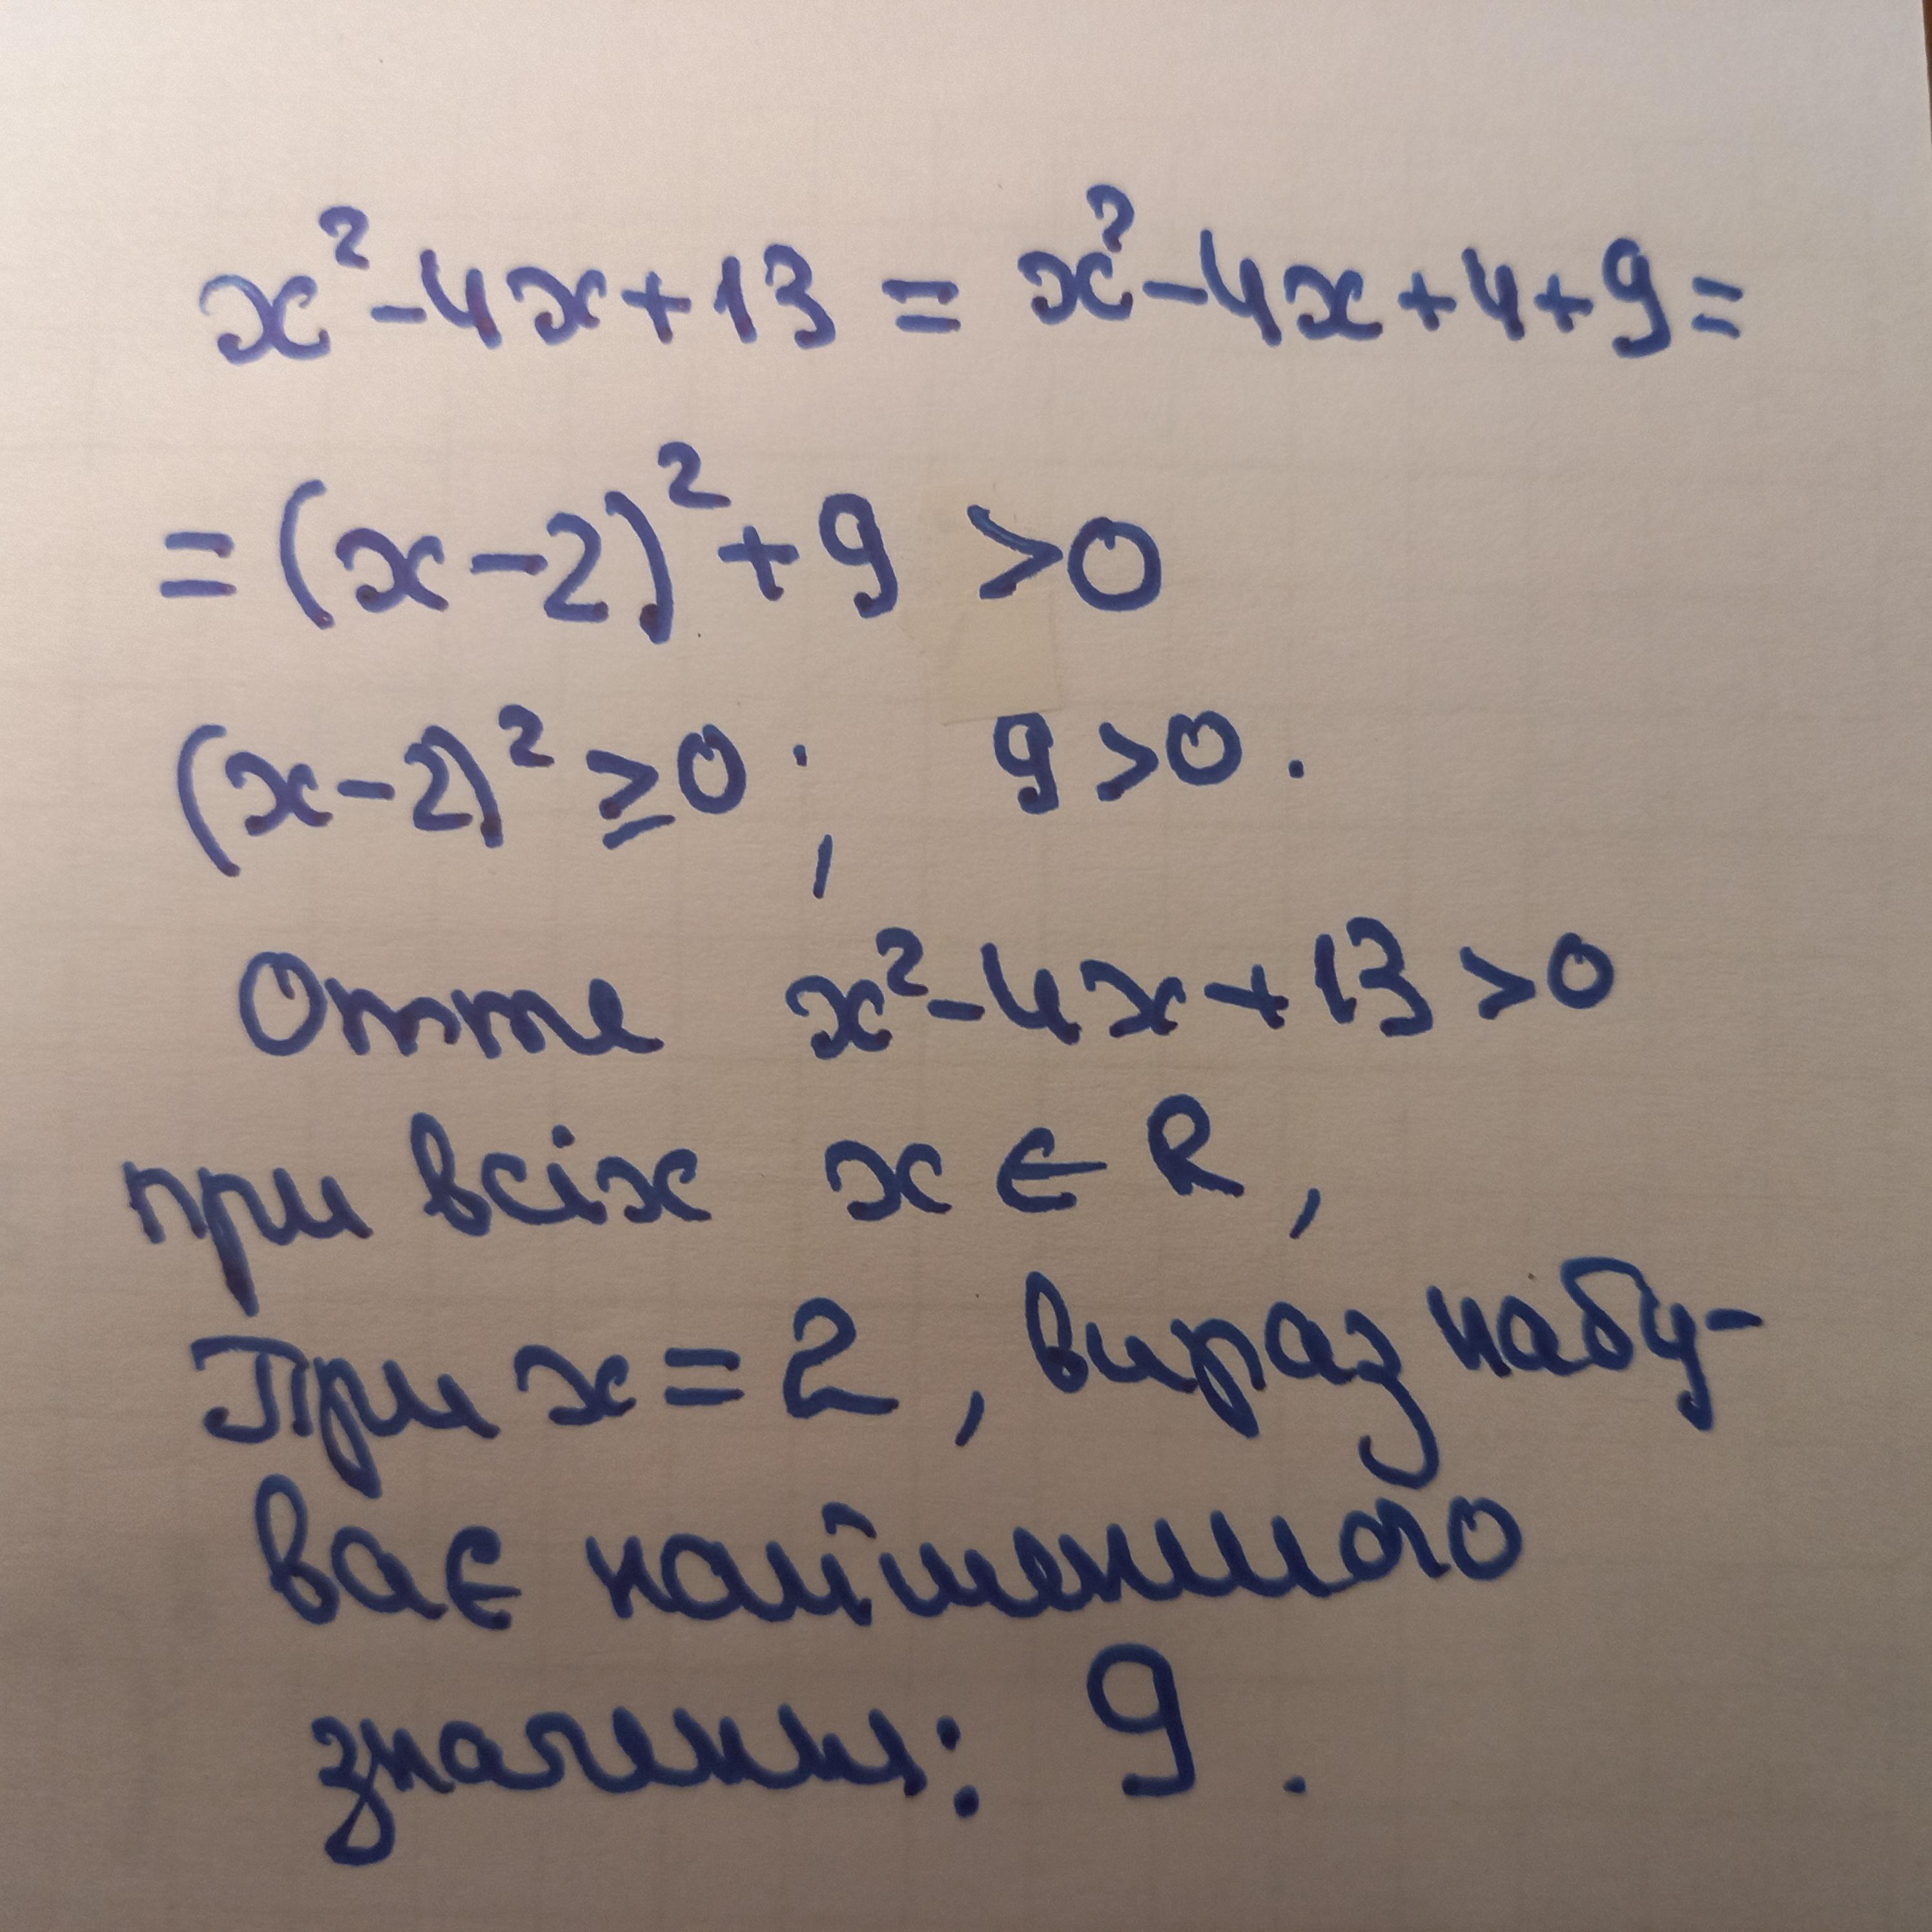 x² - 4x + 13 = x² - 4x + 4 + 9 =
= (x - 2)² + 9 > 0
(x - 2)² ≥ 0 ; 9 > 0 .
Отже x² - 4x + 13 > 0
при всіх x ∈ R ,
При x = 2 , вираз набу-
ває найменшого
значення: 9 .